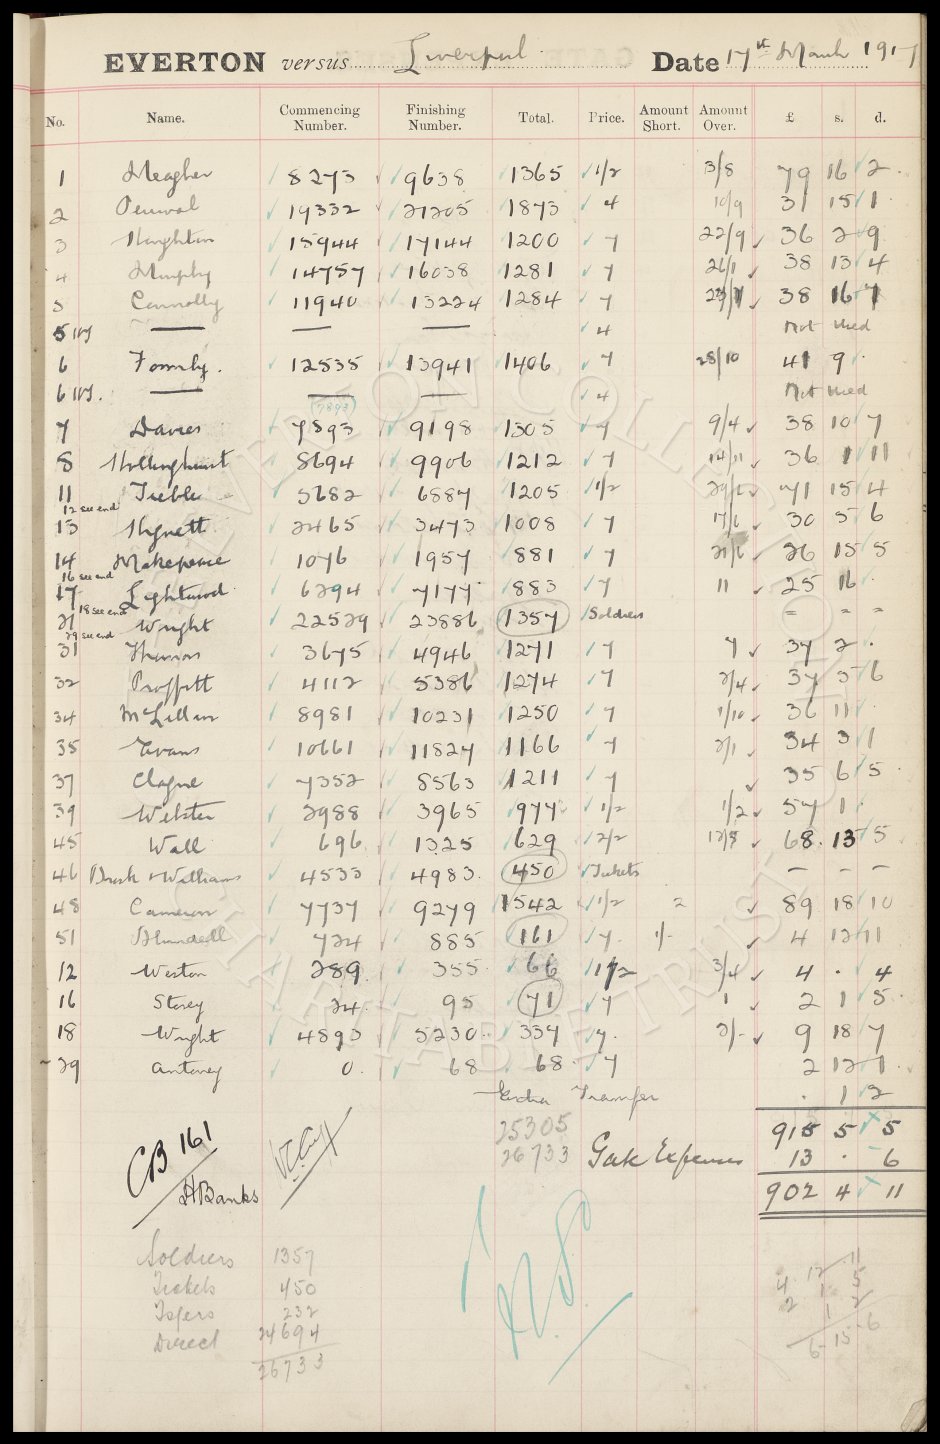 EVERTON versus Liverpool Date 17th March 1917
No. Name. Commencing Number. Finishing Number. Total. Price. Amount Short. Amount Over. £ s. d.
1 Meagher 8273 9638 1365 1/2 3/8 79 16 2
2 Percival 19332 21205 1873 4 10/9 31 15 1
3 Houghton 15944 17144 1200 7 22/9 36 2 9
4 Murphy 14757 16038 1281 7 26/1 38 13 4
5 Connolly 11940 13224 1284 7 38 16 7
5 — — — 4 Not used
6 Formby. 12535 13941 1406 7 28/10 41 9 .
6 — — 4 Not used
(7893)
7 Davies 7893 9198 1305 7 9/4 38 10 7
8 Hollinghurst 8694 9906 1212 7 14/11 36 1 11
11 Treble 5682 6887 1205 1/2 71 15 4
12 see end
13 Hignett 2465 3473 1008 7 17/6 30 5 6
14 Makepeace 1076 1957 881 7 21/6 26 15 5
16 see end
17 Lightwood 6294 7177 883 7 11 25 16 .
18 see end
21 Wright 22529 23886 1357 Soldiers = = =
29 see end
31 3675 4946 1271 7 7 37 2 .
32 Proffitt 4112 5386 1274 7 2/4 37 5 6
34 McLellan 8981 10231 1250 7 1/10 36 11 .
35 Evans 10661 11827 1166 7 2/1 34 3 1
37 Clague 7352 8563 1211 7 35 6 5
39 Webster 2988 3965 977 1/2 1/2 57 1 .
45 Wall 696 1325 629 2/2 12/8 68 13 5
46 Brook & Williams 4533 4983 450 Tickets – – –
48 Cameron 7737 9279 1542 1/2 2 89 18 10
51 Blundell 724 885 161 7 1/- 4 12 11
12 Weston 289 355 66 1/2 3/4 4 . 4
16 Storey 24 95 71 7 1 2 1 5
18 Wright 4893 5230 337 7 2/- 9 18 7
29 Antoney 0 68 68 7 2 12 1
Extra Transfer . 1 2
25305 915 5 5
26733 Gate Expenses 13 . 6
902 4 11
CB 161
HBanks
Soldiers 1357
Tickets 450
Tsfers 232
Direct 24694
26733
4 12 11
2 1 5
1 2
6 15 6
EVERTON COLLECTION CHARITABLE TRUST